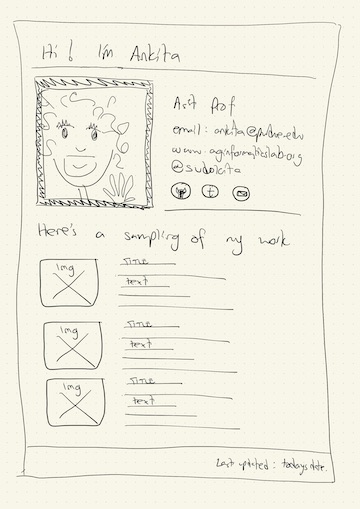 Hi! I'm Ankita
Ass't Prof
email: ankita@purdue.edu
www.aginformaticslab.org
@sudokita
Here's a sampling of my work
img
TITLE
text
img
TITLE
text
img
TITLE
text
Last updated: todays date.